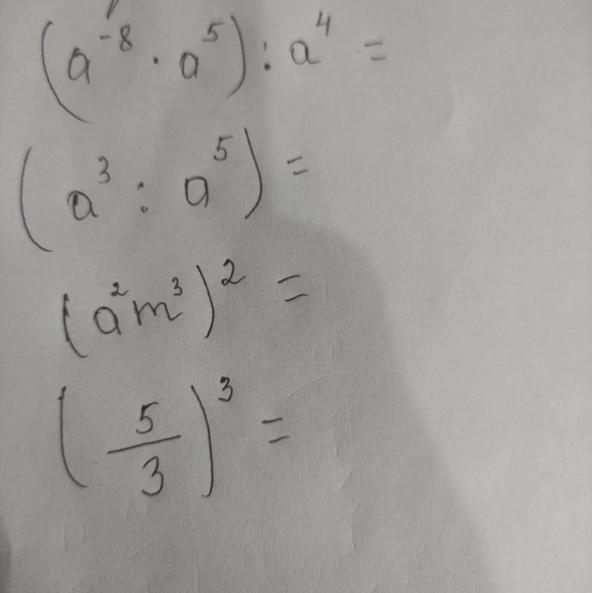 (a⁻⁸ · a⁵) : a⁴ =
(a³ : a⁵) =
(a²m³)² =
(5/3)³ =